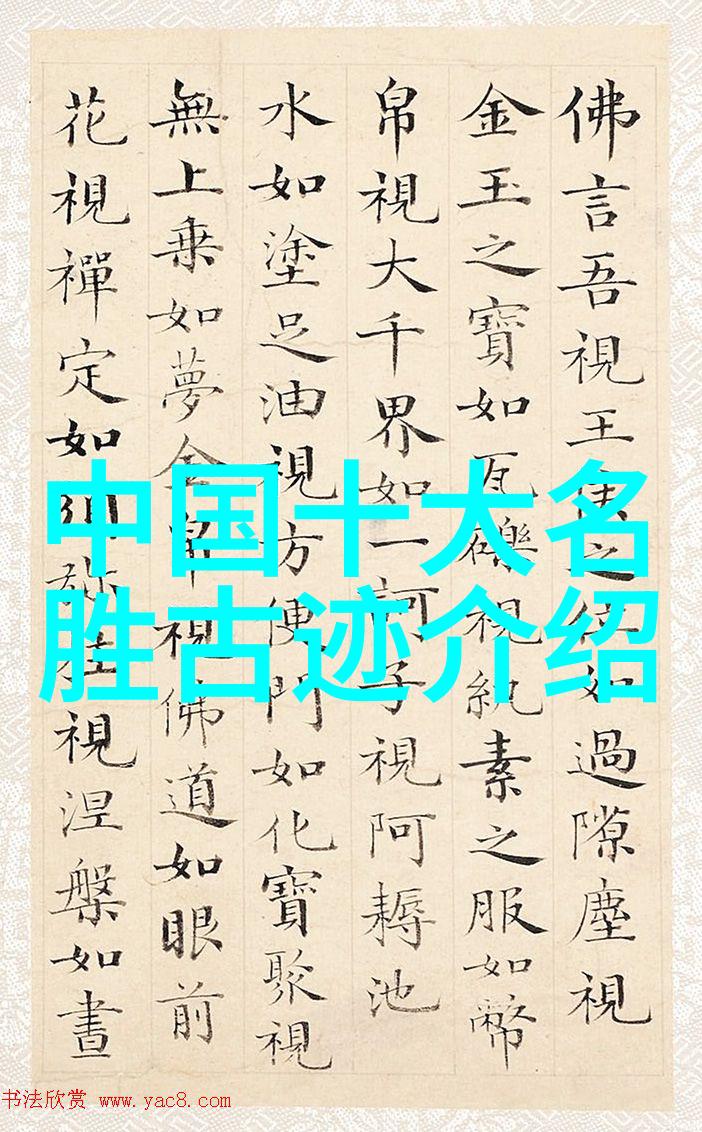 中国十大名
胜古迹介绍
佛言吾視王侯之如過隙塵視
金玉之寶如瓦礫視紈素之服如幣
帛視大千界如一訶子視阿耨池
水如塗足油視方便門如化寶聚視
無上乗如夢金帛視佛道如眼前
花視禪定如弥柱視涅槃如晝
书法欣赏 www.yac8.com